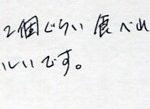 2個ぐらい食べれ
いいです。